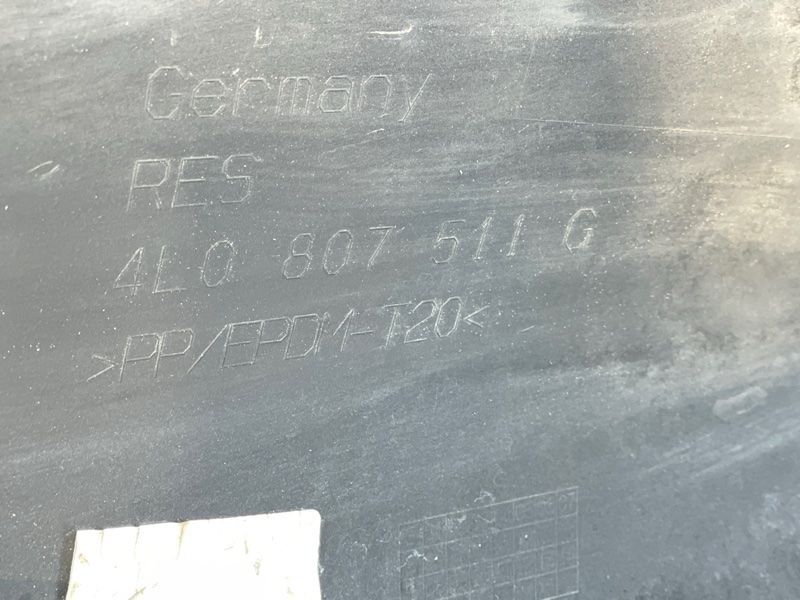 Germany
RES
4L0 807 511 G
>PP/EPDM-T20<